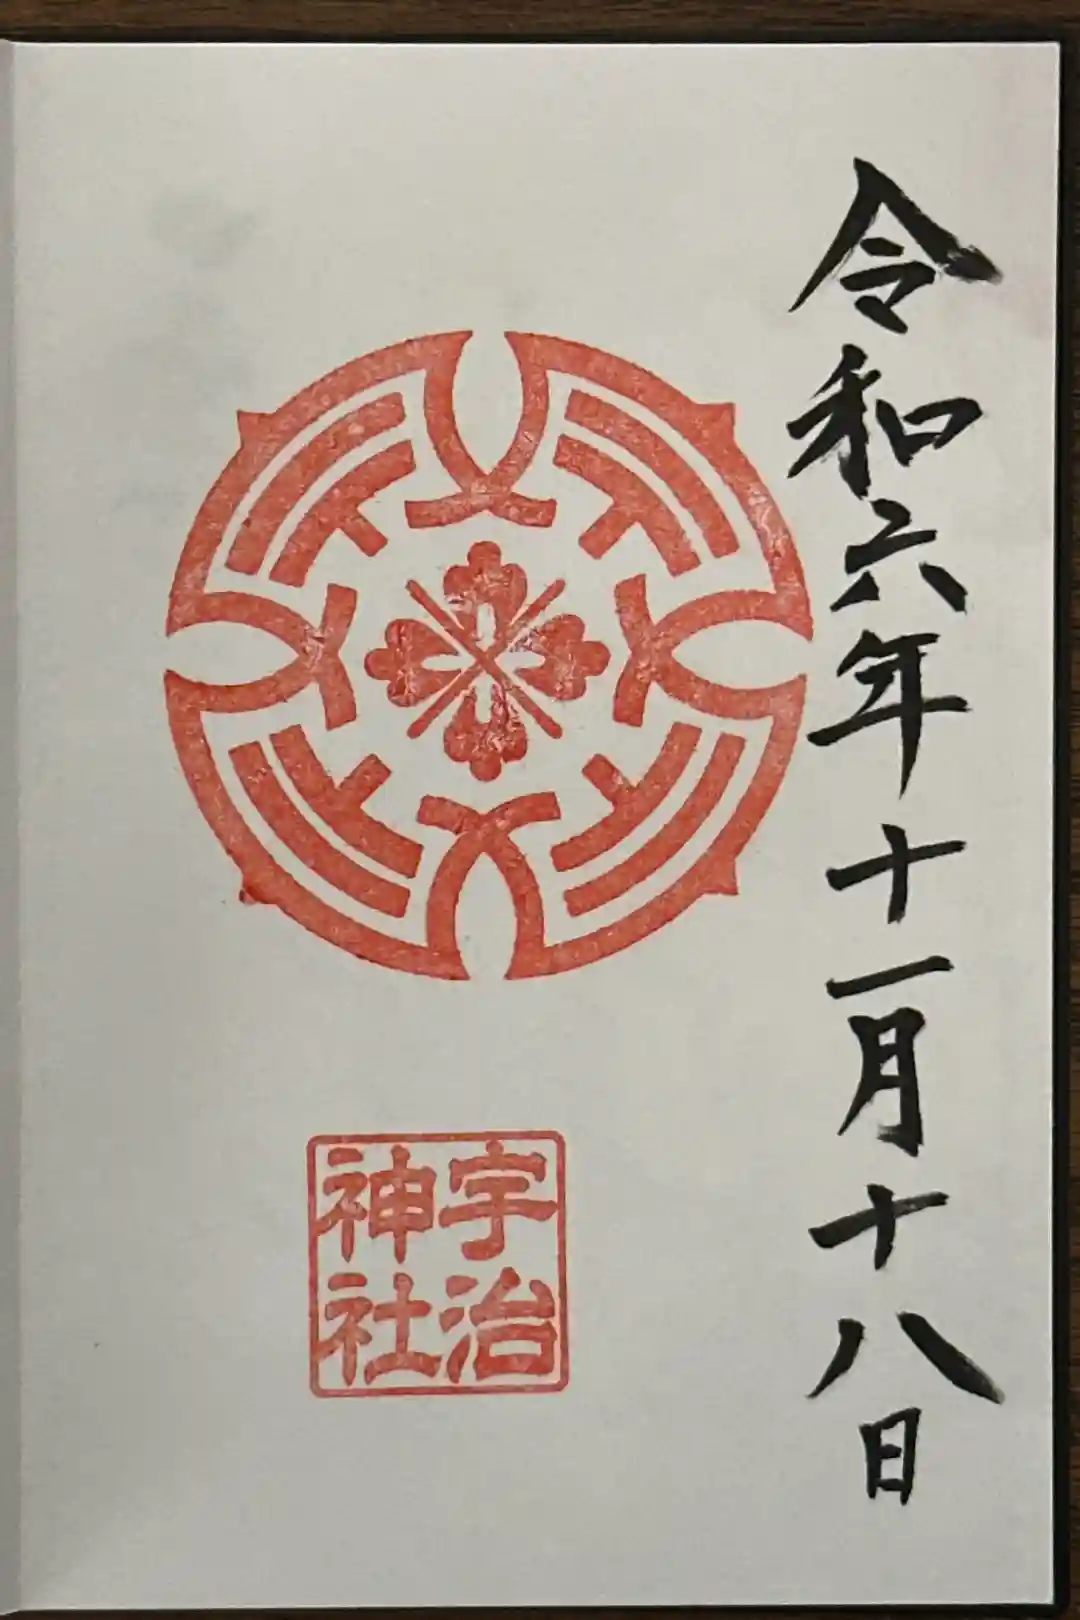 令和六年十一月十八日
宇治
神社